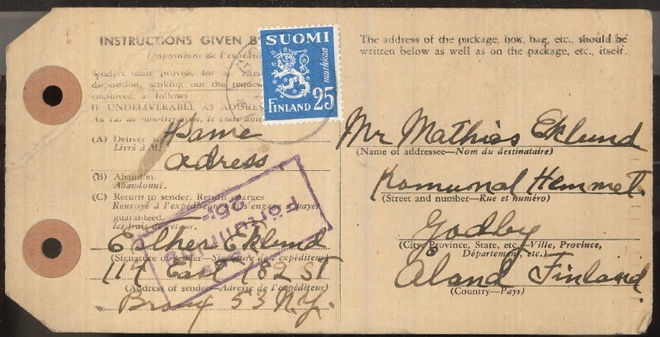 INSTRUCTIONS GIVEN B
Dispositions de l'expédit
Senders must provide for an
disposition, striking out the
employed, as follows:
IF UNDELIVERABLE AS ADDRES
Au cas de non-livraison, le colis doit
(A) Deliver to Home
Livré à M.
adress
(B) Abandon.
Abandonné.
(C) Return to sender. Return charges
Renvoyé à l'expéditeur qui s'engage à payer
guaranteed.
les frais de retour.
Esther Eklund
(Signature of sender—Signature de l'expéditeur)
117 East 182 ST
(Address of sender—Adresse de l'expéditeur)
Bronx 53 N.Y.
SUOMI
markkaa
FINLAND 25
The address of the package, box, bag, etc., should be
written below as well as on the package, etc., itself.
Mr Mathias Eklund
(Name of addressee—Nom du destinataire)
Komunal Hemmet.
(Street and number—Rue et numéro)
Godby
(City, Province, State, etc.—Ville, Province,
Département, etc.)
Åland Finland.
(Country—Pays)